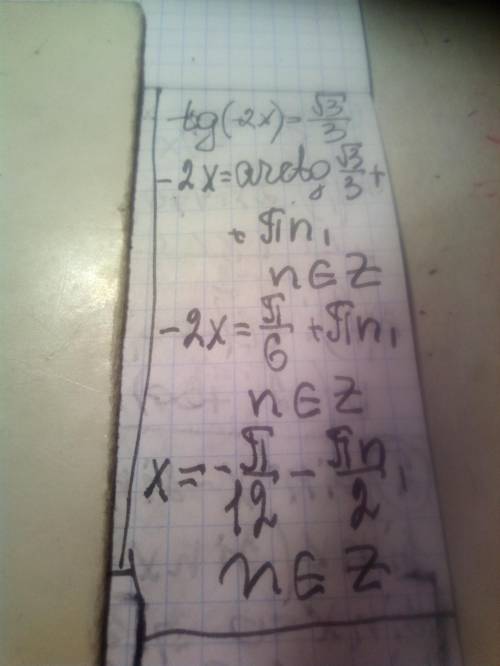 tg(-2x) = √3/3
-2x = arctg √3/3 +
+ πn,
n ∈ Z
-2x = π/6 + πn,
n ∈ Z
x = - π/12 - πn/2,
n ∈ Z